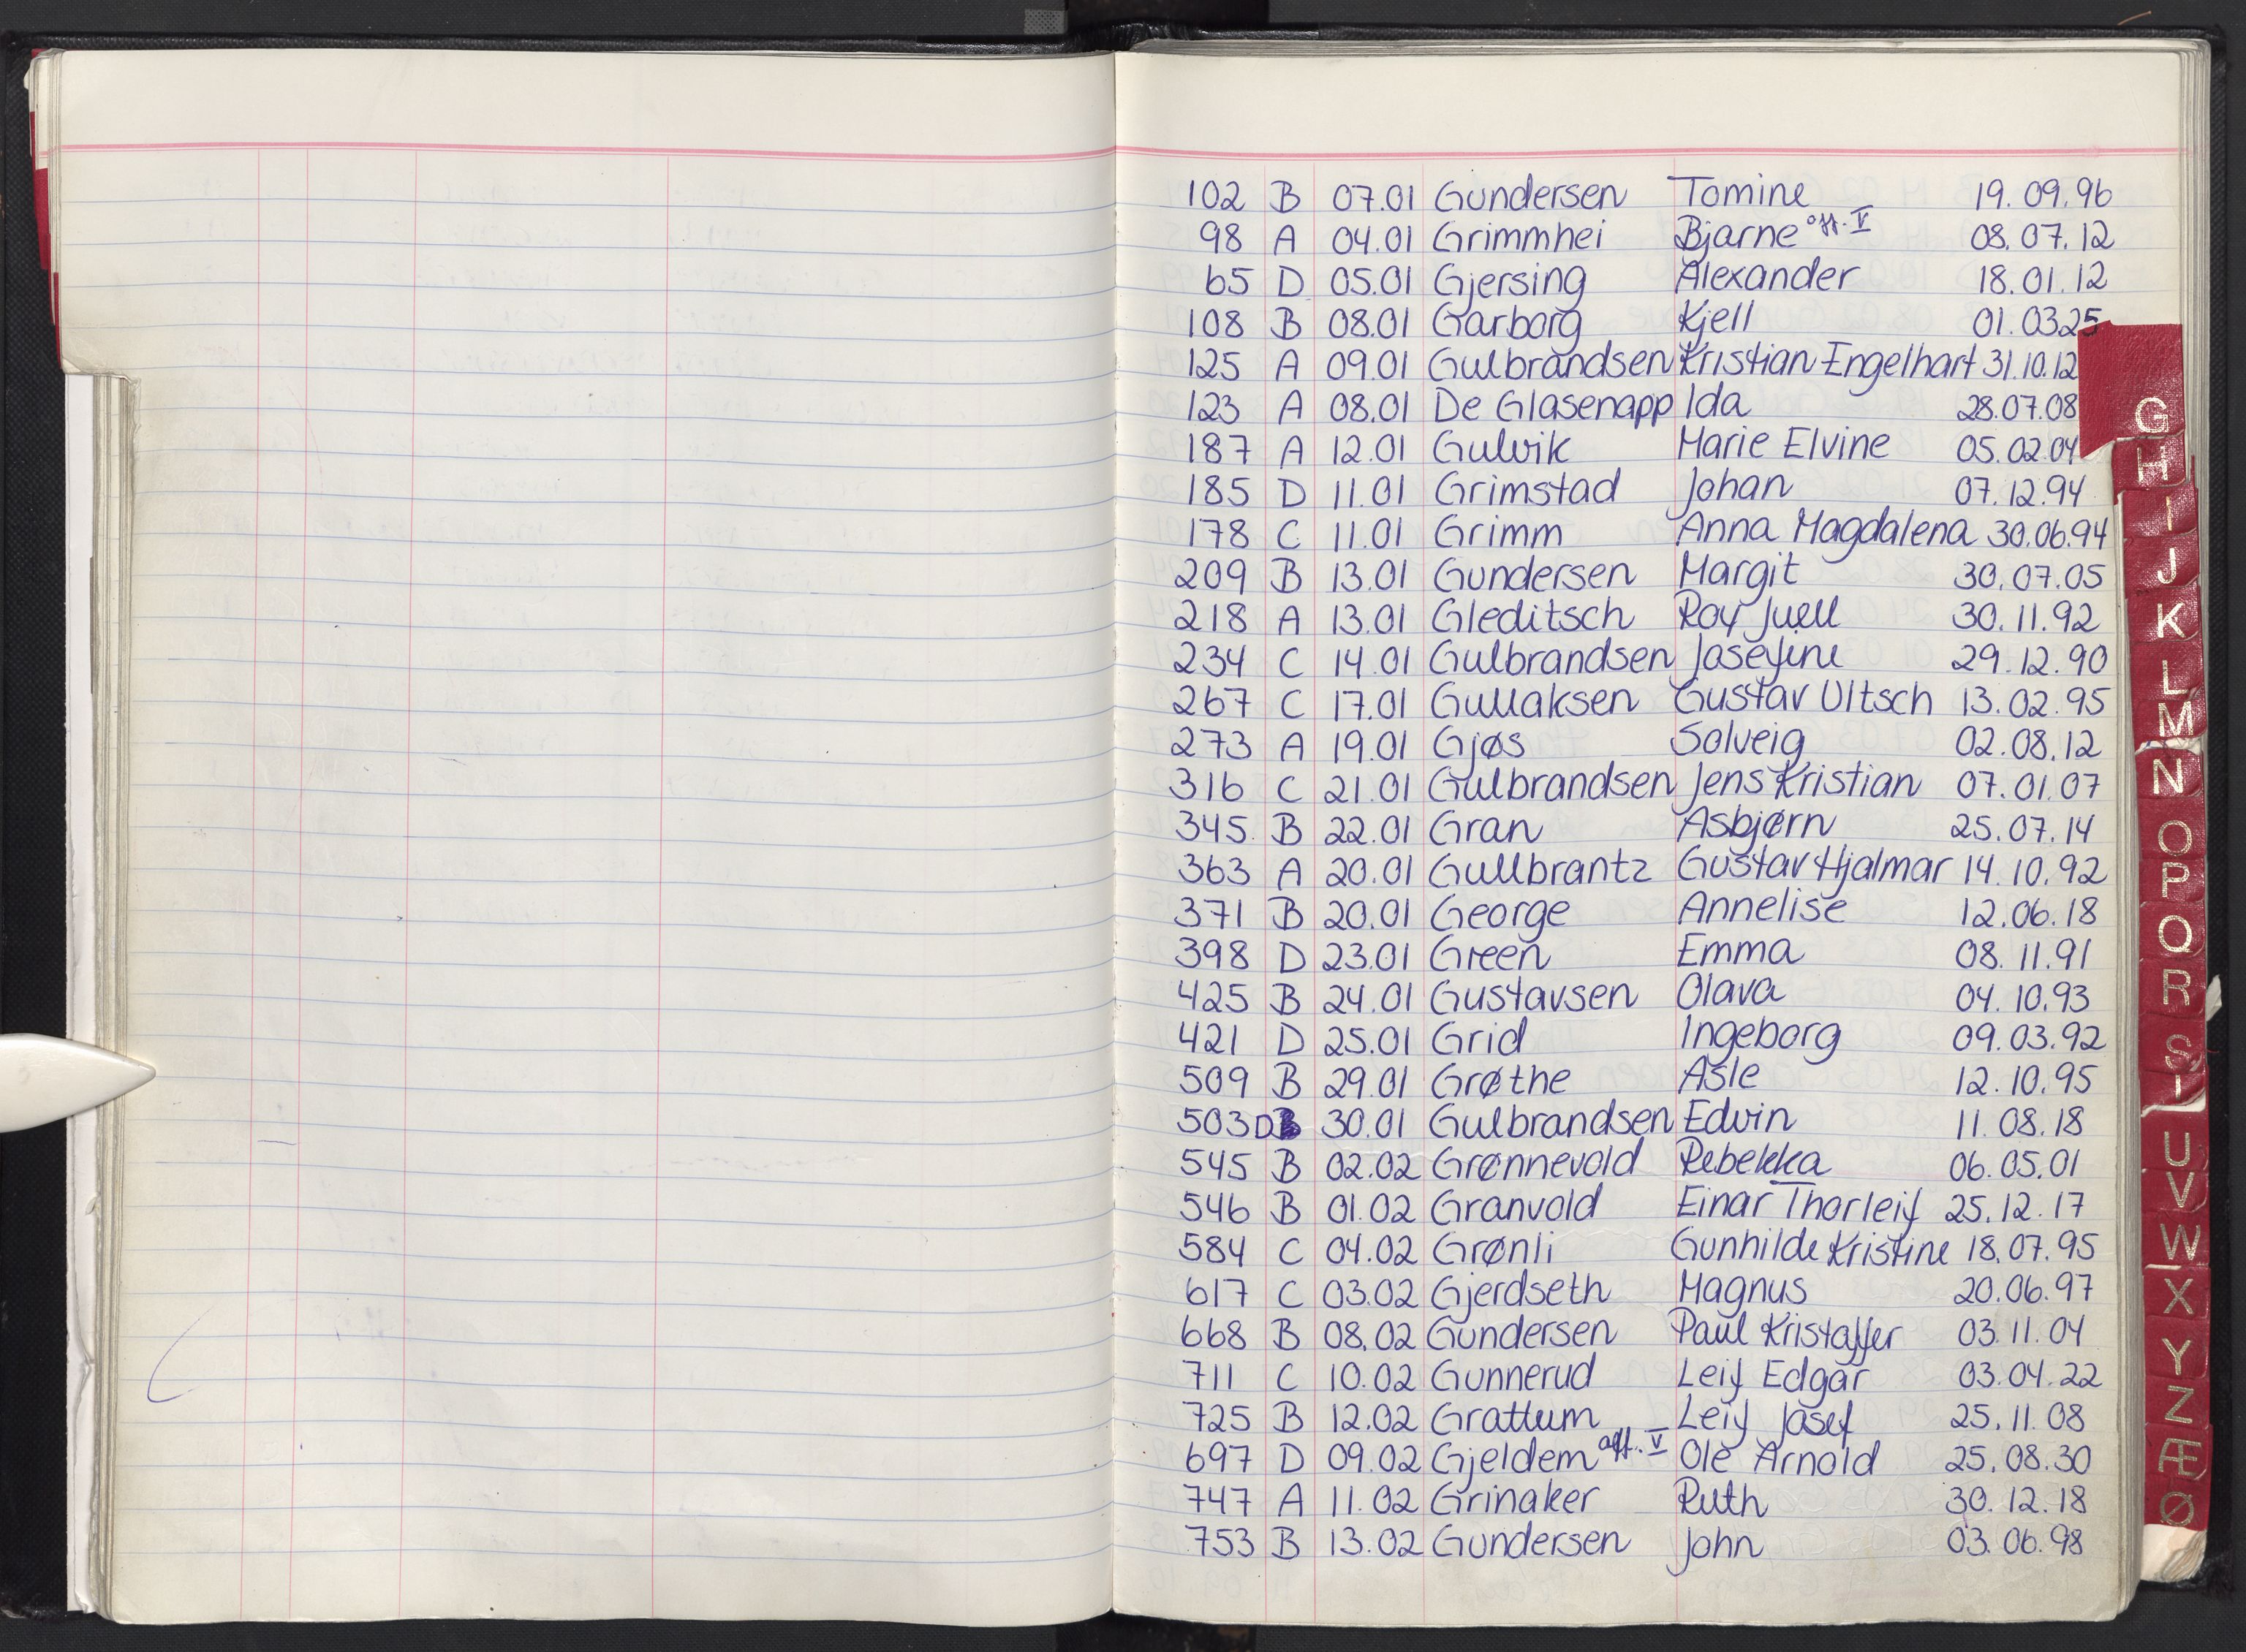 102 B 07.01 Gundersen Tomine 19.09.96
98 A 04.01 Grimmhei Bjarne off. V 08.07.12
65 D 05.01 Gjersing Alexander 18.01.12
108 B 08.01 Garborg Kjell 01.03.25
125 A 09.01 Gulbrandsen Kristian Engelhart 31.10.12
123 A 08.01 De Glasenapp Ida 28.07.08
187 A 12.01 Gulvik Marie Elvine 05.02.04
185 D 11.01 Grimstad Johan 07.12.94
178 C 11.01 Grimm Anna Magdalena 30.06.94
209 B 13.01 Gundersen Margit 30.07.05
218 A 13.01 Gleditsch Roy Juell 30.11.92
234 C 14.01 Gulbrandsen Josefine 29.12.90
267 C 17.01 Gullaksen Gustav Ultsch 13.02.95
273 A 19.01 Gjøs Solveig 02.08.12
316 C 21.01 Gulbrandsen Jens Kristian 07.01.07
345 B 22.01 Gran Asbjørn 25.07.14
363 A 20.01 Gullbrantz Gustav Hjalmar 14.10.92
371 B 20.01 George Annelise 12.06.18
398 D 23.01 Green Emma 08.11.91
425 B 24.01 Gustavsen Olava 04.10.93
421 D 25.01 Grid Ingeborg 09.03.92
509 B 29.01 Grøthe Asle 12.10.95
503 D 30.01 Gulbrandsen Edvin 11.08.18
545 B 02.02 Grønnevold Rebekka 06.05.01
546 B 01.02 Granvold Einar Thorleif 25.12.17
584 C 04.02 Grønli Gunhilde Kristine 18.07.95
617 C 03.02 Gjerdseth Magnus 20.06.97
668 B 08.02 Gundersen Paul Kristoffer 03.11.04
711 C 10.02 Gunnerud Leif Edgar 03.04.22
725 B 12.02 Grattum Leif Josef 25.11.08
697 D 09.02 Gjeldem off. V Ole Arnold 25.08.30
747 A 11.02 Grinaker Ruth 30.12.18
753 B 13.02 Gundersen John 03.06.98
G
H
I
J
K
L
M
N
O
P
Q
R
S
T
U
V
W
X
Y
Z
Æ
Ø